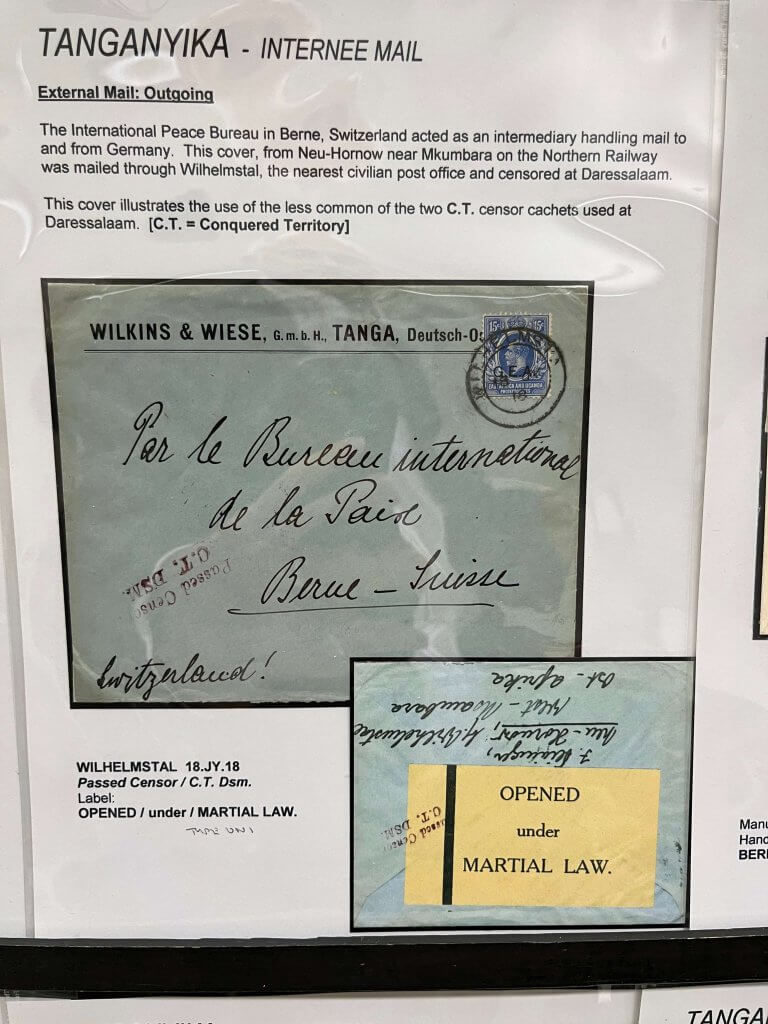 TANGANYIKA - INTERNEE MAIL
External Mail: Outgoing
The International Peace Bureau in Berne, Switzerland acted as an intermediary handling mail to
and from Germany. This cover, from Neu-Hornow near Mkumbara on the Northern Railway
was mailed through Wilhelmstal, the nearest civilian post office and censored at Daressalaam.
This cover illustrates the use of the less common of the two C.T. censor cachets used at
Daressalaam. [C.T. = Conquered Territory]
WILKINS & WIESE, G.m.b.H., TANGA, Deutsch-Os
15c 15c
G.E.A.
EAST AFRICA AND UGANDA
PROTECTORATES
Par le Bureau international
de la Paix
Berne - Suisse
Passed Censo
C.T. DSM.
Switzerland!
WILHELMSTAL 18.JY.18
Passed Censor / C.T. Dsm.
Label:
OPENED / under / MARTIAL LAW.
TYPE UN1
Neu-Hornow, Wilhelmstal
West-Usambara
Ost-Afrika
OPENED
under
MARTIAL LAW.
assed Censo
C.T. DSM.
Manu
Hand
BER
TANGA